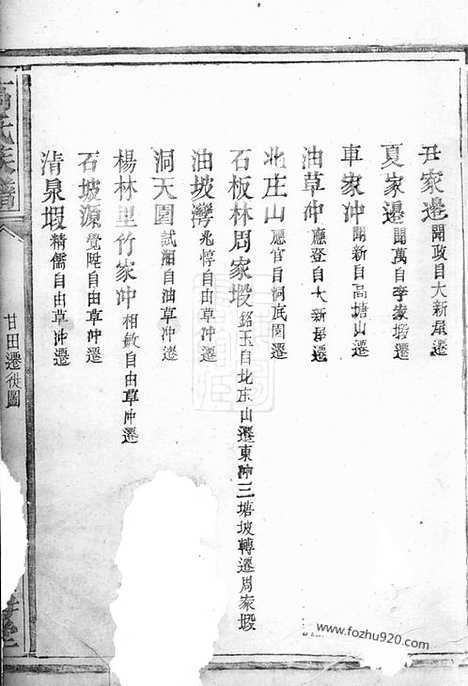 丑家邊 開政自大新屋遷
夏家邊 開萬自李家塅遷
車家冲 開新自高塘山遷
油草冲 應登自大新屋遷
北庄山 應官自洞底園遷
石板林周家塅 銘玉自北庄山遷東冲三塘坡轉遷周家塅
油坡灣 兆惇自由草冲遷
洞天園 試溜自油草冲遷
楊林里竹家冲 相敏自由草冲遷
石坡源 覺陞自由草冲遷
清泉塅 精儒自由草冲遷
氏族譜
甘田遷徙圖
堂
www.fozhu920.com